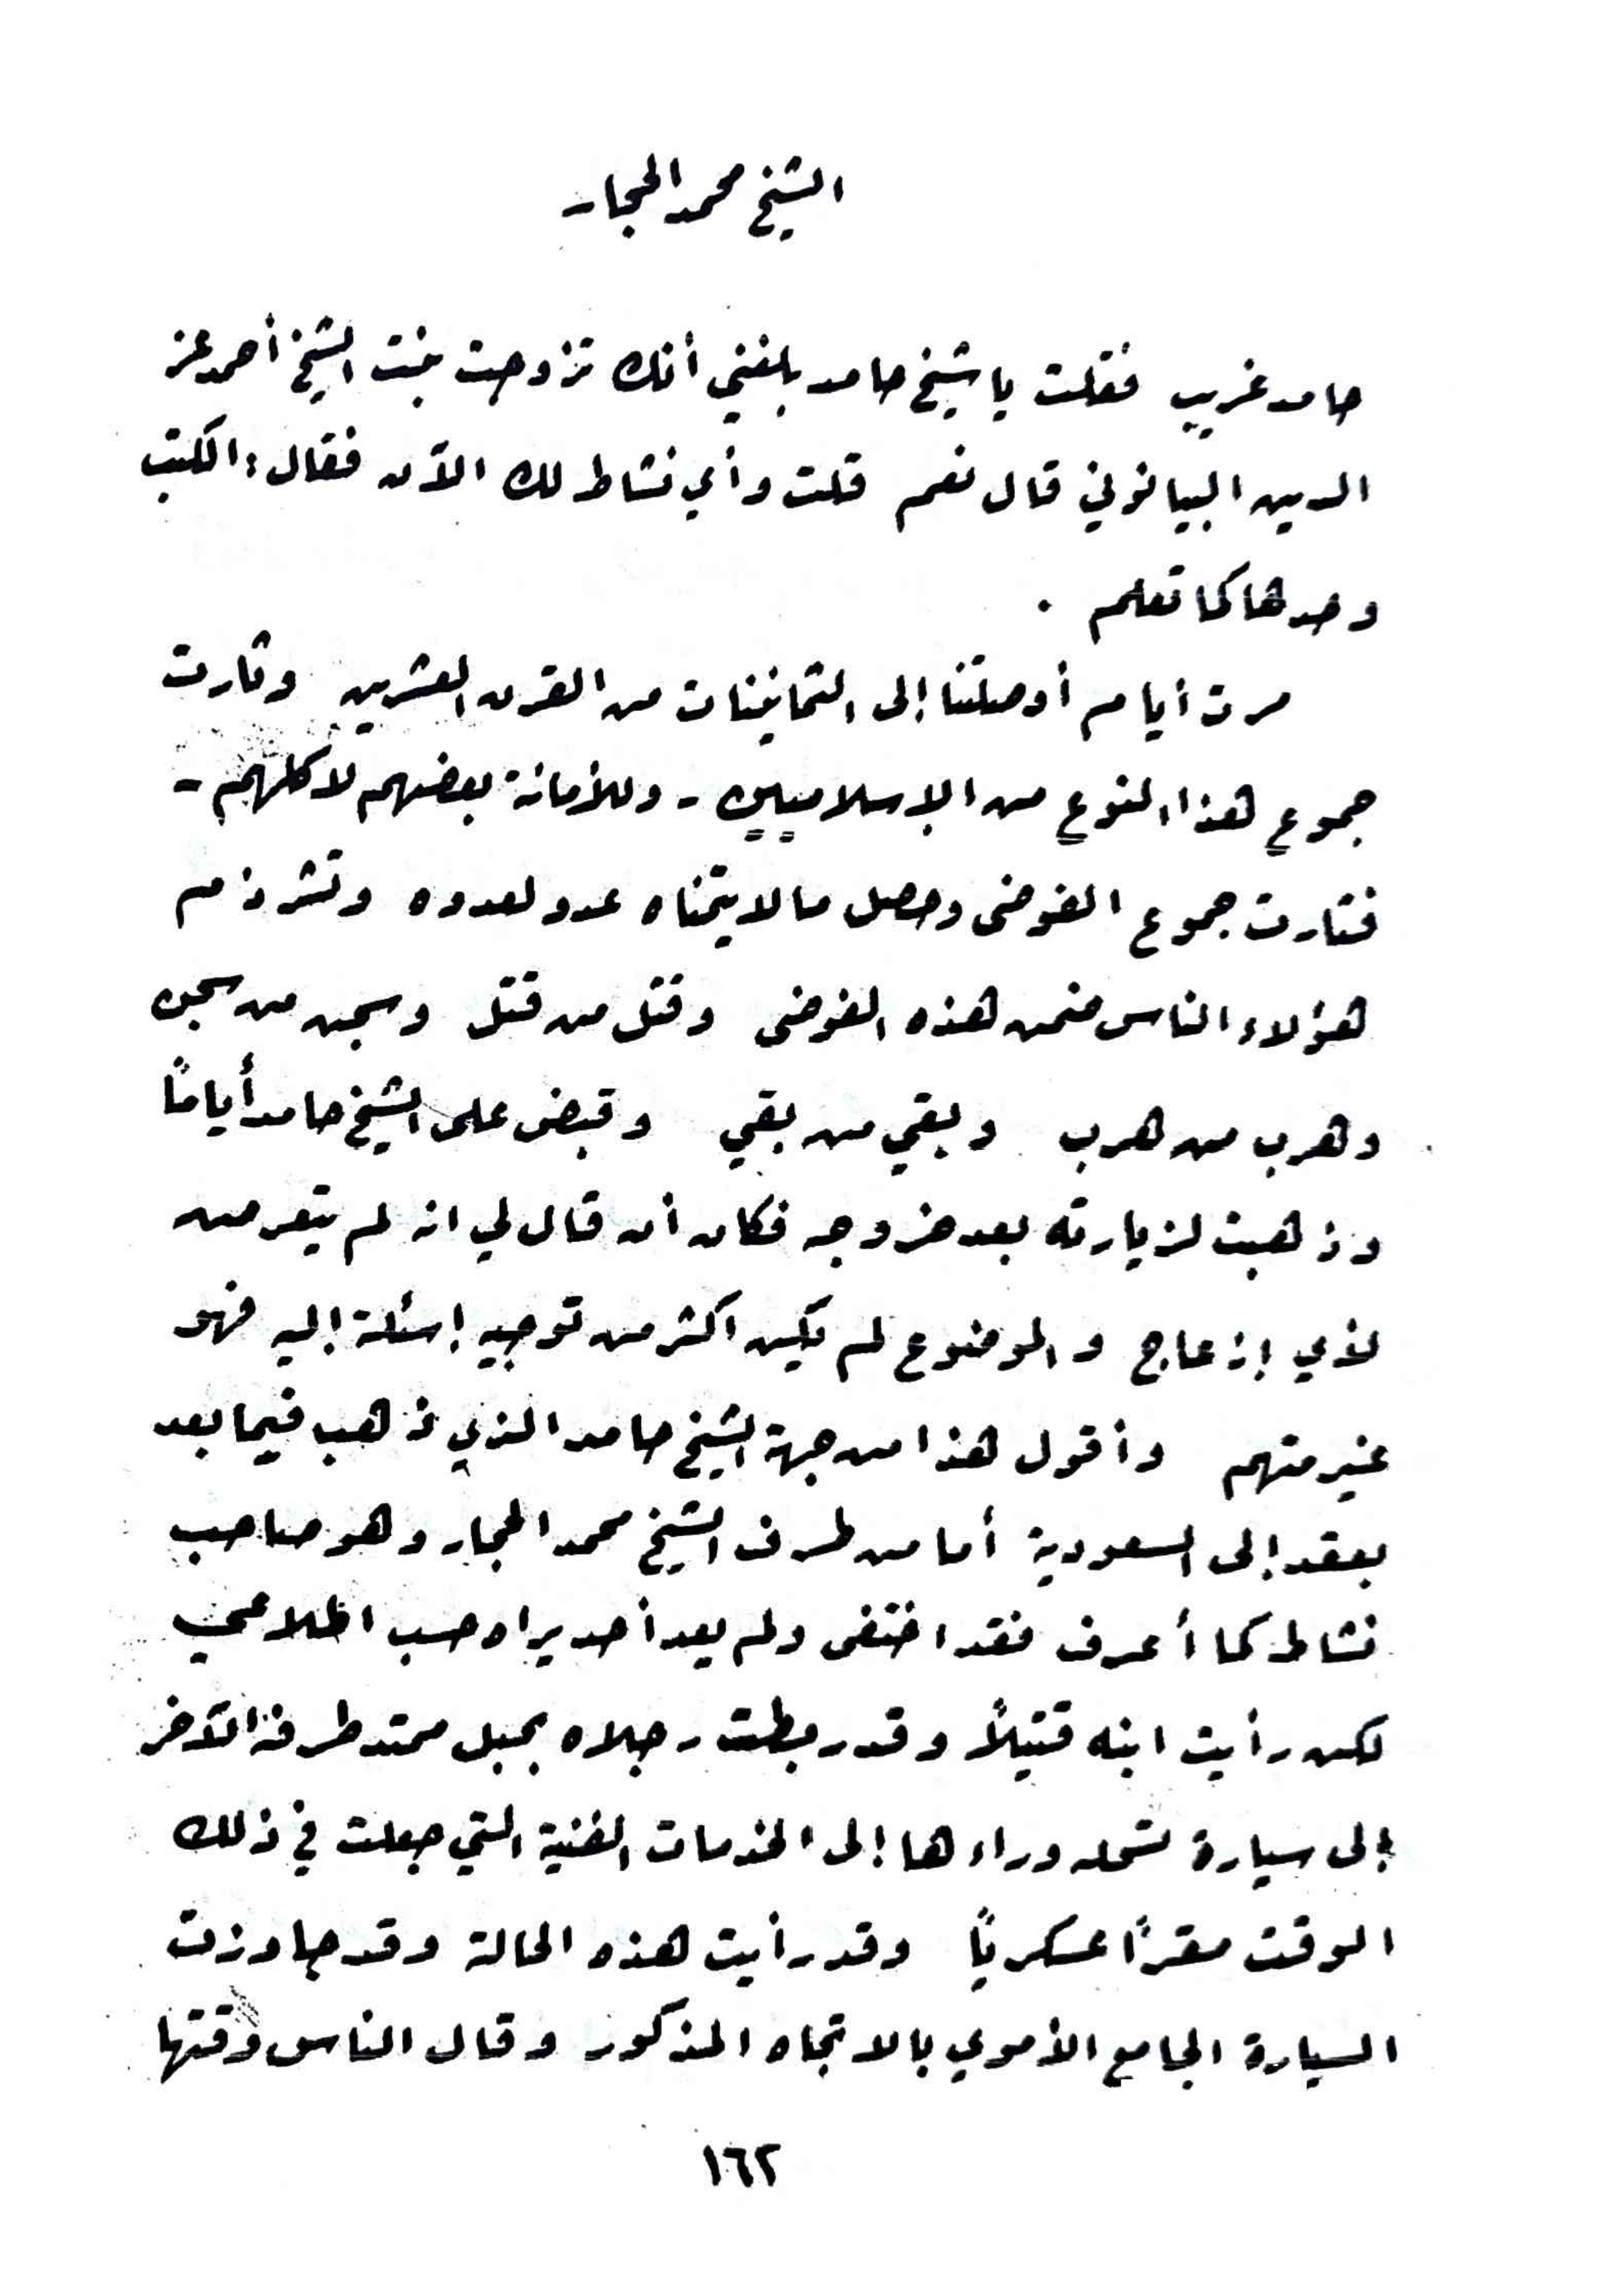 الشيخ محمد الحجار
حامد غريب فقلت يا شيخ حامد بلغني أنك تزوجت بنت الشيخ أحمد عز
الدين البيانوني قال نعم قلت وأي نشاط لك الآن فقال : الكتب
وحدها كما تعلم .
مرت أيام أوصلتنا إلى الثمانينات من القرن العشرين وثارت
جموع هذا النوع من الإسلاميين - وللأمانة بعضهم لا كلهم -
فثارت جموع الفوضى وحصل ما لا يتمناه عدو لعدوه وتشرذم
هؤلاء الناس ضمن هذه الفوضى وقتل من قتل وسجن من سجن
وهرب من هرب وبقي من بقي وقبض على الشيخ حامد أياماً
وذهبت لزيارته بعد خروجه فكان أن قال لي انه لم يتعرض
لأي إزعاج والموضوع لم يكن اكثر من توجيه إسئلة إليه فهو
غير متهم وأقول هذا من جهة الشيخ حامد الذي ذهب فيما بعد
بعقد إلى السعودية أما من طرف الشيخ محمد الحجار وهو صاحب
نشاط كما أعرف فقد اختفى ولم يعد أحد يراه حسب اطلاعي
لكن رأيت ابنه قتيلاً وقد ربطت رجلاه بحبل ممتد طرفه الآخر
إلى سيارة تشحله وراءها إلى الخدمات الفنية التي جعلت في ذلك
الوقت مقراً عسكرياً وقد رأيت هذه الحالة وقد جاوزت
السيارة الجامع الأموي بالاتجاه المذكور وقال الناس وقتها
١٦٢